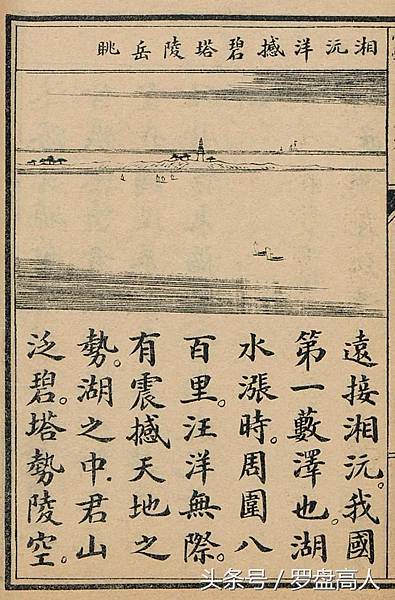 湘沅洋撼碧塔陵岳眺
遠接湘沅。我國
第一藪澤也。湖
水漲時。周圍八
百里。汪洋無際。
有震撼天地之
勢。湖之中。君山
泛碧。塔勢陵空。
头条号 / 罗盘高人